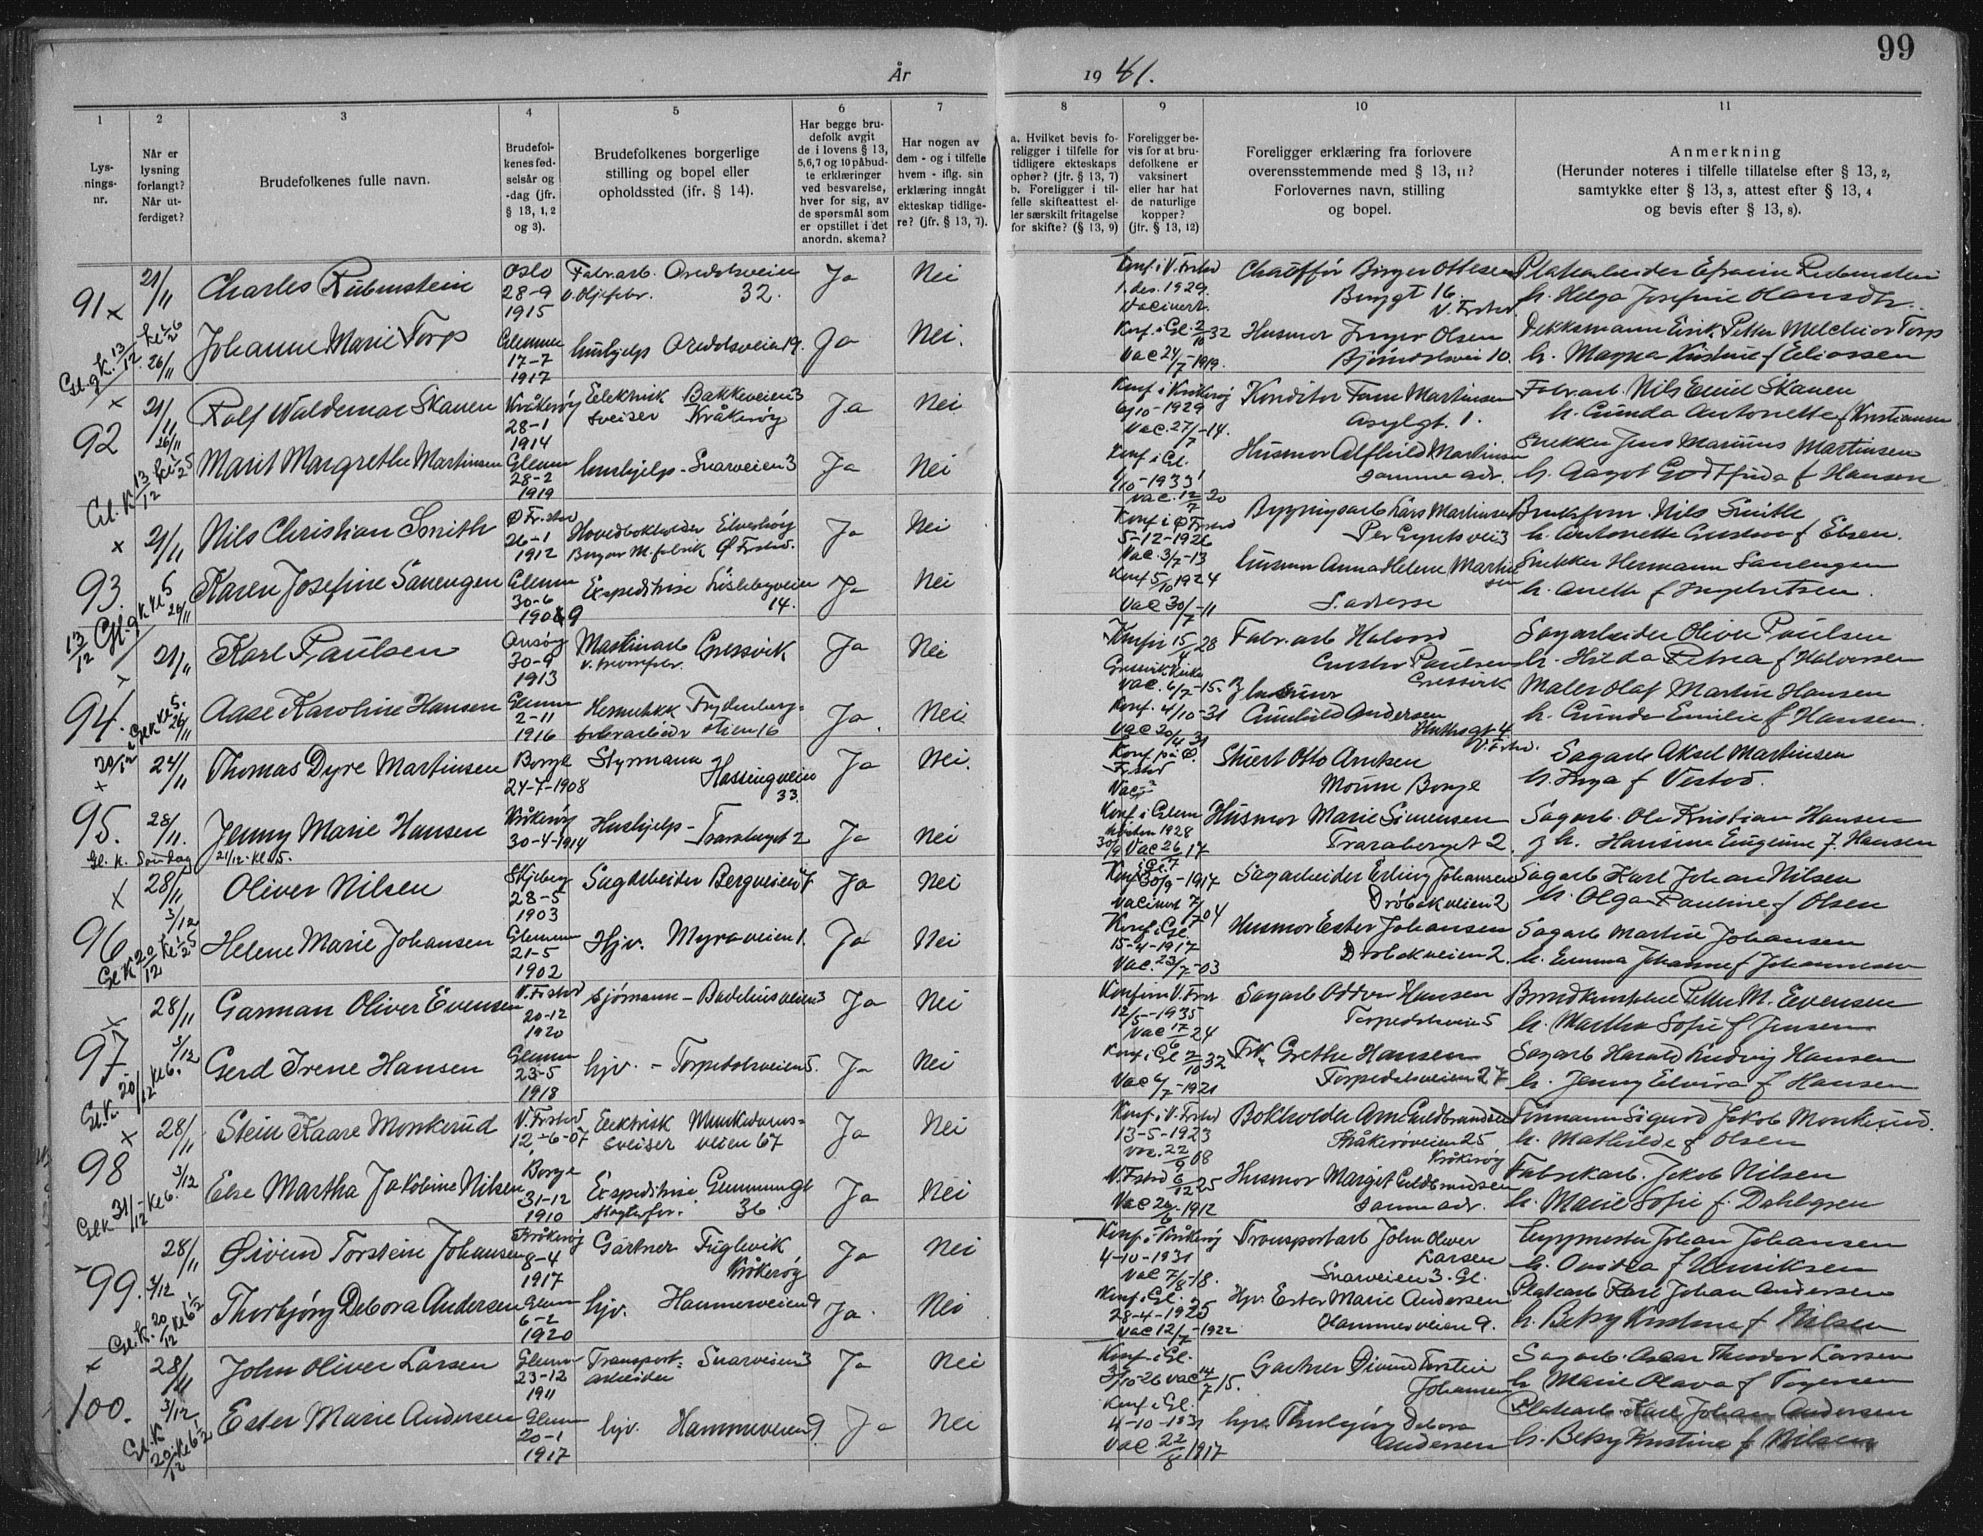 99
År 1941.
1
Lys-
nings-
nr.
2
Når er
lysning
forlangt?
Når ut-
ferdiget?
3
Brudefolkenes fulle navn.
4
Brudefol-
kenes fød-
selsår og
-dag (jfr.
§ 13, 1, 2
og 3).
5
Brudefolkenes borgerlige
stilling og bopel eller
opholdssted (jfr. § 14).
6
Har begge bru-
defolk avgit
de i lovens § 13,
5,6,7 og 10 påbud-
te erklæringer
ved besvarelse,
hver for sig, av
de spørsmål som
er opstillet i det
anordn. skema?
7
Har nogen av
dem - og i tilfelle
hvem - iflg. sin
erklæring inngått
ekteskap tidlige-
re? (jfr. § 13, 7).
8
a. Hvilket bevis fo-
religger i tilfelle for
tidligere ekteskaps
ophør? (jfr. § 13, 7)
b. Foreligger i til-
felle skifteattest el-
ler særskilt fritagelse
for skifte? (§ 13, 9)
9
Foreligger be-
vis for at bru-
defolkene er
vaksinert
eller har hat
de naturlige
kopper?
(jfr. § 13, 12)
10
Foreligger erklæring fra forlovere
overensstemmende med § 13, 11?
Forlovernes navn, stilling
og bopel.
11
Anmerkning
(Herunder noteres i tilfelle tillatelse efter § 13, 2,
samtykke efter § 13, 3, attest efter § 13, 4
og bevis efter § 13, 8).
91 x
21/11
Charles Rubinstein
Oslo
28-9
1915
Fabr.arb. Oredalsveien
32.
Ja
Nei
Konf i V. Frstad
1. des. 1929.
Vacinert.
Chauffør Birger Ottesen
16.
V. Frstad
Platearbeider Efraim Rubinstein
h. Helga Josefine Olansdtr.
26/11
Johanne Marie Torp
Glemm
17-7
1917
hushjelp Oredalsveien 19.
Ja
Nei.
Konf. i Gl. 2/10 32
Vac 24/7-1919.
Husmor Inger Olsen
10.
Dekksmann Eirik Petter Melchior Torp
h. Magna Kristine f Eliassen
x
92
21/11
26/11
Rolf Waldemar Skauen
Kråkerøy
28-1
1914
Elektrisk Bakkeveien 3
sveiser Kråkerøy
Ja
Nei
Konf i Kråkerøy
6/10-1929
Vac. 27/7-14.
Konditor Martinsen
Asylgt. 1.
Fabr.arb. Nils Emil Skauen
h. Gunda Antonette f Kristiansen
Marit Margrethe Martinsen
Glemm
28-2
1919
hushjelp - Snarveien 3
Ja
Nei
Konf i Gl.
1/10-1933
Vac. 12/7 20
Husmor Alfhild Martinsen
samme adr.
Snekker Jens Marinus Martinsen
h. Aagot Godtfrida f Hansen
x
93.
21/11
Nils Christian Smith
Ø Fr.stad
26-1
1912
Hovedbokholder
Ø Frstad.
Ja
Nei
Konf i Ø Frstad
5-12-1926
Vac. 3/7-13
Bygningsarb Lars Martinsen
Per Gyntsvei 3
Nils Smith
h. Antonette Gustava f Ebsen.
26/11
Karen Josefine Sanengen
Glemm
30-6
1909
Expeditrise Lislebyveien
14.
Ja
Nei
Konf 5/10 1924
Vac 30/7-11
husmor Anna Helene Martin
sen
S. adresse
Snekker Hermann Sanengen
h. Anette f Ingebretsen.
x
94.
21/11
Karl Paulsen
Onsøy
30-9
1913
Maskinarb Gressvik
Ja
Nei
Konfir 15/4 28
Gressvik Kirke
Vac. 6/7-15.
Fabr.arb Halvard
Gustav Paulsen
Gressvik
Sagarbeider Oliver Paulsen
h. Hilda Petrea f Halvorsen
26/11
Aase Karoline Hansen
Glemm
2-11
1916
Frydenberg-
stien 16
Ja.
Nei.
Konf. 4/10-31
Vac 30/4 31
Gunhild Andersen
V. Frstad.
Maler Olaf Martin Hansen
h. Gunda Emilie f Hansen.
x
95.
24/11
Thomas Dyre Martinsen
Borge
24-7-1908
Styrmann
Hassingveien
33.
Ja
Nei.
Konf på Ø.
Frstad
Vac
Stuert Otto Arntsen
Moum Borge
Sagarb Aksel Martinsen
h. Inga f Vistad.
28/11.
Jenny Marie Hansen
Kråkerøy
30-4-1914
Hushjelp -
Traraberget 2
Ja
Nei
Konf i Glem
høsten 1928
Vac 26
Husmor Marie Simensen
Traraberget 2.
Sagarb. Ole Kristian Hansen
og h. Hansine Eugenie f Hansen
Gl. K. Søndag 21/12. kl. 5.
x
96
28/11
3/12
Oliver Nilsen
Skjeberg
28-5
1903
Sagarbeider Bergveien 7
Ja
Nei
Konf 30/9-1917
Vacinert 7/7 04
Sagarbeider Erling Johansen
Drøbakveien 2
Sagarb Karl Johan Nilsen
h. Olga Pauline f Olsen
Helene Marie Johansen
Glemm
21-5
1902
Hjv. Myraveien 1.
Ja
Nei
Konf. i Gl.
15-4-1917
Vac. 23/7-03
Husmor Ester Johansen
Drøbakveien 2.
Sagarb Martin Johansen
h. Emma Johanne f Johannesen
x
97
28/11
3/12
Garman Oliver Evensen
V. Frstad
20-12
1920
Sjømann - Badehusveien 3
Ja
Nei
Konfir i V. Frst
12/5-1935
Vac 17/6 24
Sagarb Oddvar Hansen
Torpedalsveien 5
Petter M. Evensen
h. Martha Sofie f Jensen
Gerd Irene Hansen
Glemm
23-5
1918
hjv. - Torpedalsveien 5.
Ja
Nei
Konf. i Gl 2/10 32
Vac 6/7-1921
Frk Grethe Hansen
Torpedalsveien 27
Sagarb Harald Ludvig Hansen
h. Jenny Elvira f Hansen
x
98
28/11
3/12
Stein Kaare Monkerud
V. Frstad
12-6-07
Elektrisk Munkedams-
sveiser veien 67
Ja
Nei
Konf. i V. Frstad
13-5-1923
Vac. 22/9 08
Bokholder Arne Guldbrandsen
Kråkerøveien 25
Kråkerøy
Formann Sigurd Jakob Monkerud.
h. Mathilde f Olsen
Else Martha Jakobine Nilsen
Borge
31-12
1910
Expeditrise
36.
Ja
Nei
V. Frstad 6/12 25
Vac 1912
Husmor Margit Guldbrandsen
samme adr.
Fabrikarb. Jakob Nilsen
h. Marie Sofie f. Dahlgren
99.
28/11
3/12
Øivind Torstein Johansen
Kråkerøy
8-4
1917
Gartner Fuglevik
Kråkerøy
Ja
Nei
Konf. i Kråkerøy
4-10-1931
Vac 7/8-18.
Transportarb John Oliver
Larsen
Snarveien 3. Gl.
Johan Johansen
h. Ovidia f Henriksen
Thorbjørg Debora Andersen
Glem
6-2
1920
hjv. Hammerveien 9
Ja.
Nei
Konf. i Gl.
28-4-1935
Vac 12/7-1922
Hjv. Ester Marie Andersen
Hammerveien 9.
Platearb Karl Johan Andersen
h. Betsy Kristine f Nilsen
x
100.
28/11
3/12
John Oliver Larsen
Glemm
23-12
1911
Transport- Snarveien 3
arbeider
Ja
Nei
Konf i Gl.
3/10-26 Vac 14/7 15.
Gartner Øivind Torstein
Johansen
Sagarb. Oscar Theodor Larsen
h Marie Olava f Torgersen
Ester Marie Andersen
Glemm
20-1
1917
hjv. Hammerveien 9
Ja
Nei
Konf. i Gl.
4-10-1931
Vac 22/8 1917
hjv. Thorbjørg Debora
Andersen
Platearb Karl Johan Andersen
h. Betsy Kristine f Nilsen